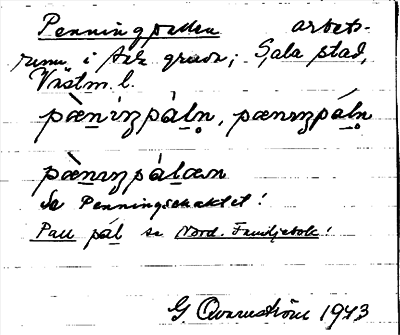 Penningpallen arbets-
rum i Sala gruva; Sala stad,
Västm. l.
pæ̀niŋpáln̥, pæniŋpáln̥
pæ̀niŋpálæn
Se Penningschaktet!
Pall pál se Nord. Familjebok!
G Qvarnström 1943